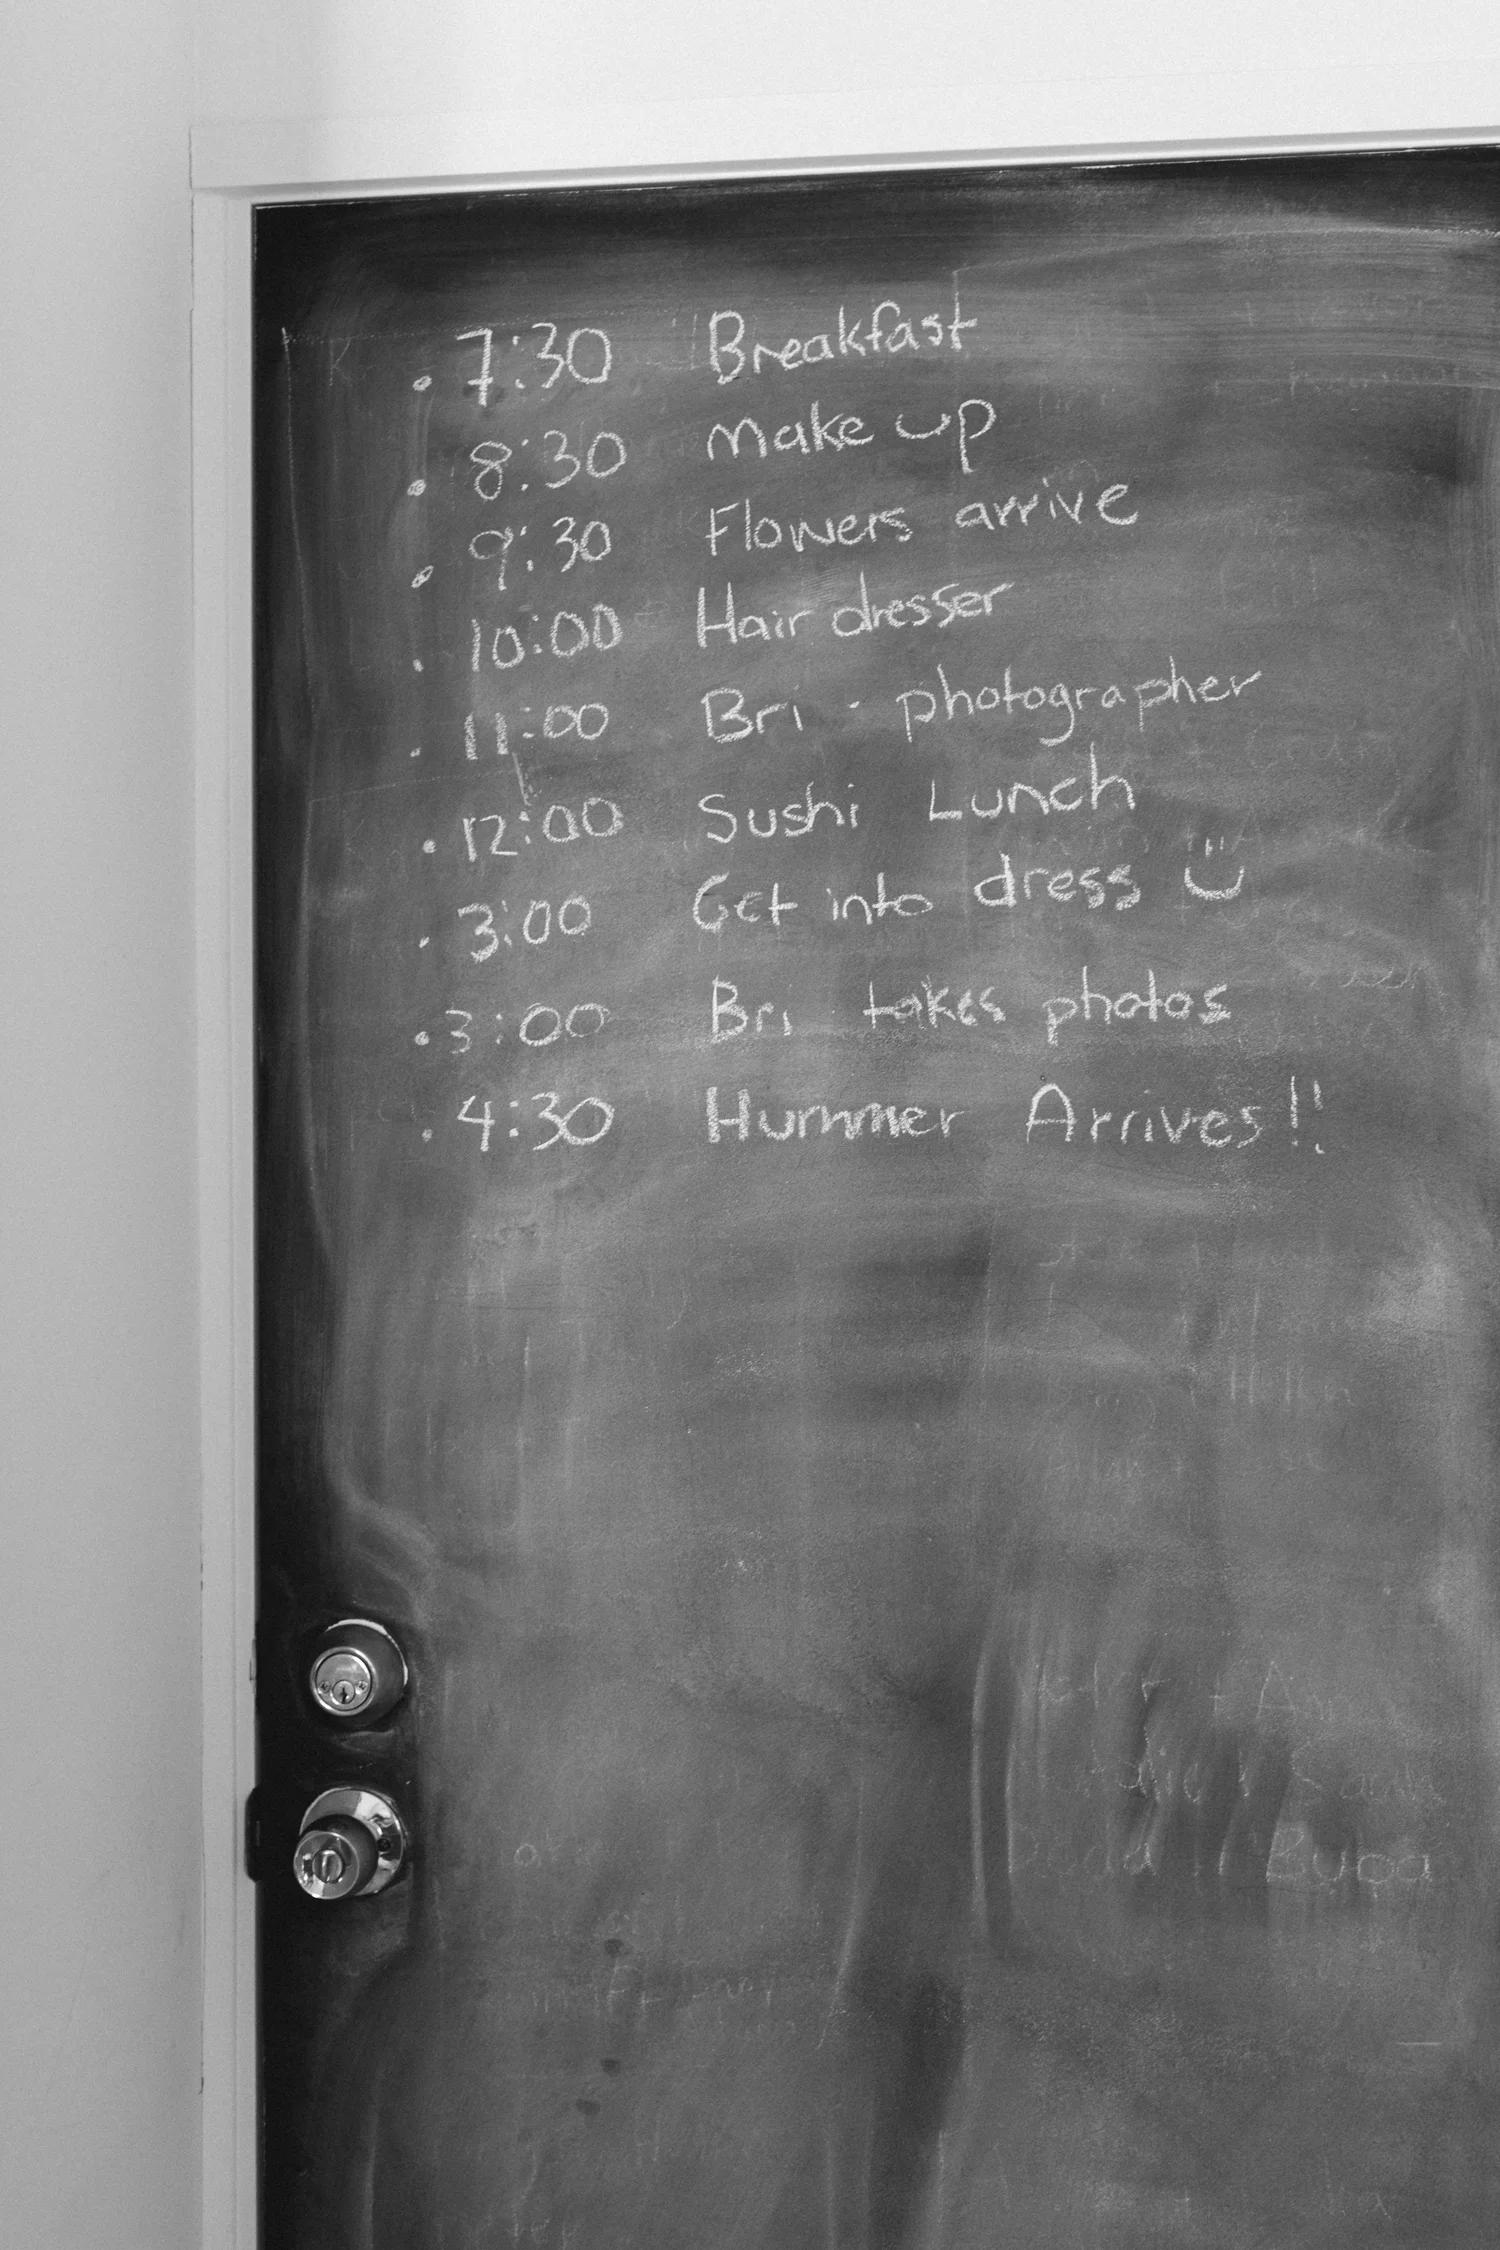 • 7:30 Breakfast
• 8:30 Make up
• 9:30 Flowers arrive
• 10:00 Hair dresser
• 11:00 Bri - photographer
• 12:00 Sushi Lunch
• 3:00 Get into dress
• 3:00 Bri takes photos
• 4:30 Hummer Arrives!!